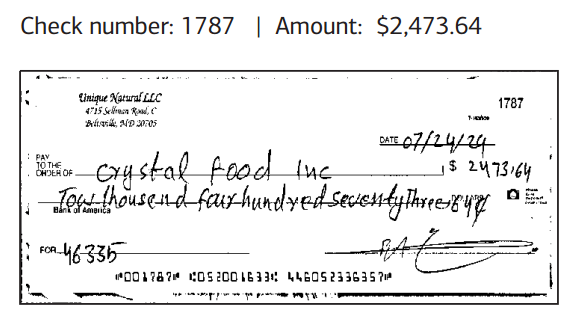 Check number: 1787 | Amount: $2,473.64
Unique Natural LLC
4715 Sellman Road, C
Beltsville, MD 20705
1787
DATE 07/24/24
PAY
TO THE
ORDER OF Crystal food Inc $ 2473,64
Tow thousend fair hundred seventy Three
Bank of America
FOR 46335
⑈001787⑈ ⑆052001633⑆ 446052336357⑈